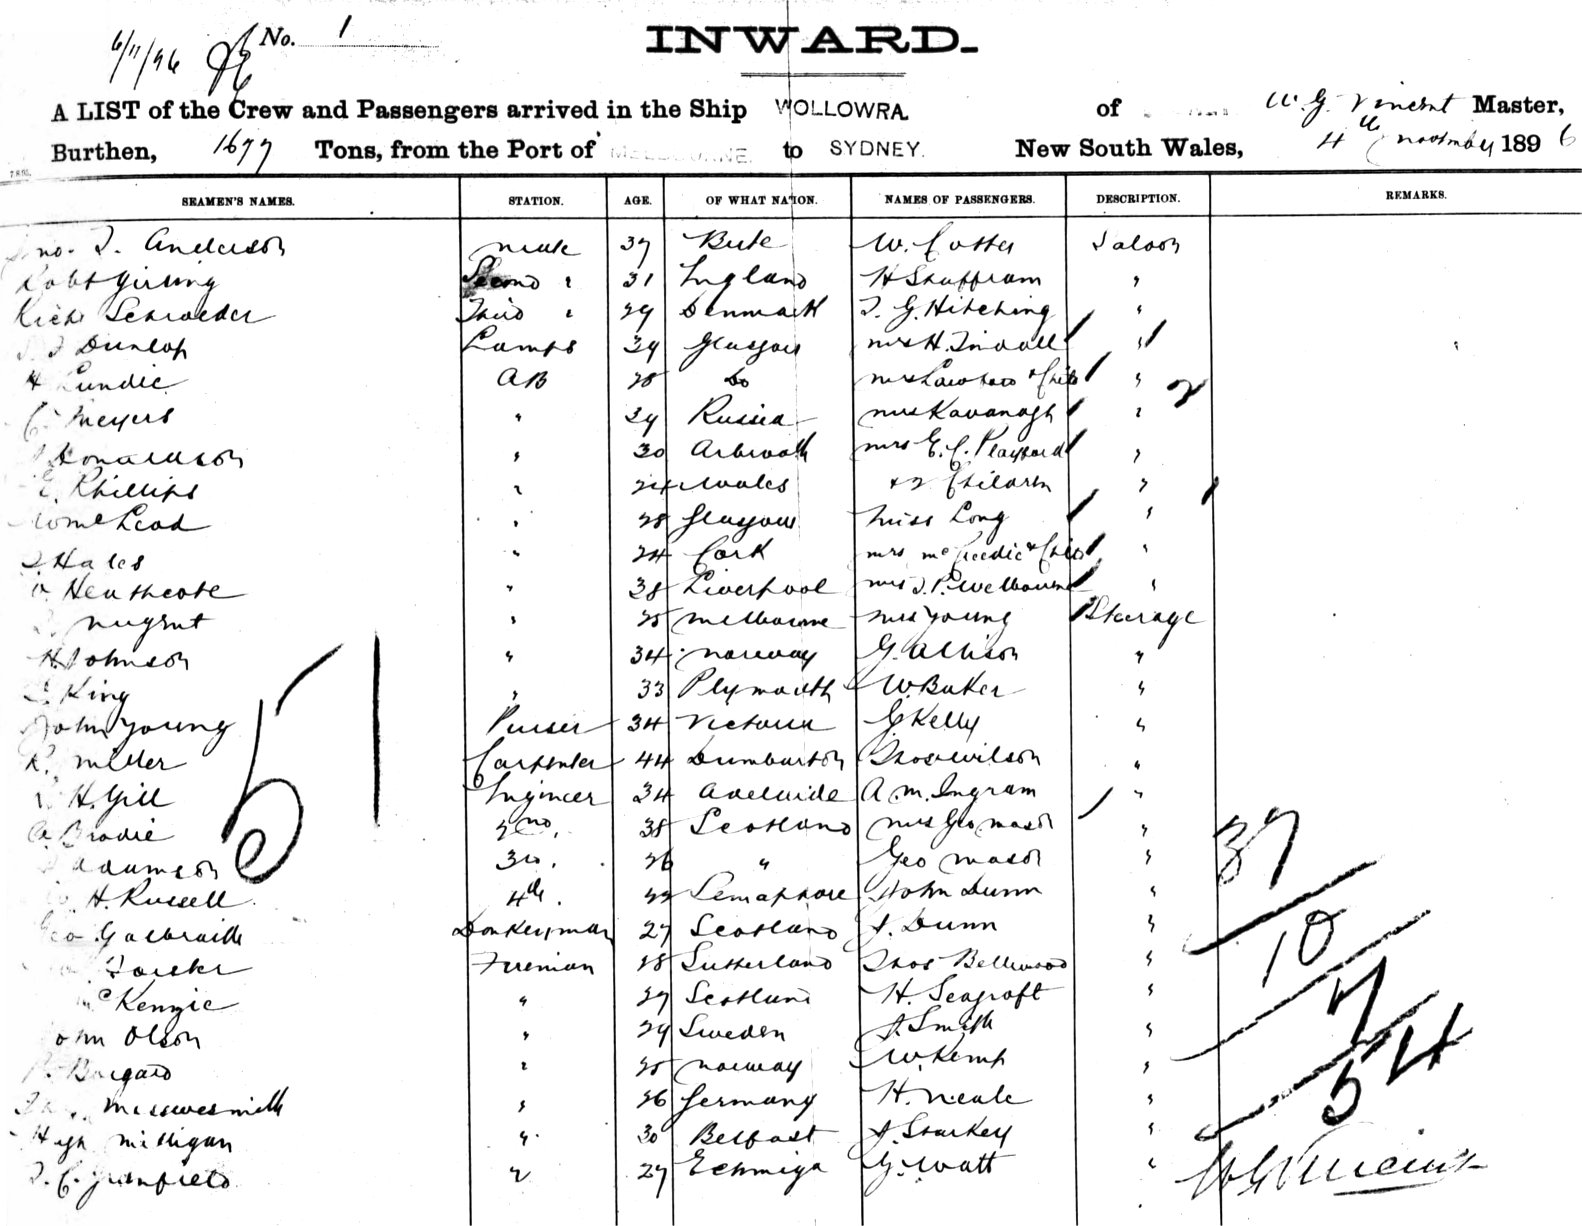 6/11/96 No. 1
INWARD.
A LIST of the Crew and Passengers arrived in the Ship WOLLOWRA. of W. G. Vincent Master,
Burthen, 1677 Tons, from the Port of MELBOURNE to SYDNEY. New South Wales, 4th November 1896
SEAMEN'S NAMES. STATION. AGE. OF WHAT NATION. NAMES OF PASSENGERS. DESCRIPTION. REMARKS.
Jno. T. Anderson Mate 37 Bute W. Cotter Saloon
Robt Girling Second " 31 England H Shuffram "
Richd Schroeder Third " 29 Denmark T. G. Hitching "
Dunlop Lamps 39 Glasgow Mrs H. Tindall "
H Lundie AB 28 Do Mrs & Child " 2
C. Meyers " 39 Russia Mrs Kavanagh "
Donaldson " 30 Arbroath Mrs E. C. Playford "
E. Phillips " 24 Wales & 2 Children "
Lead " 28 Glasgow Miss Long "
J Hales " 24 Cork Mrs McCreedie & Child "
Heathcote " 38 Liverpool Mrs J. P. Welbourne "
Nugent " 25 Melbourne Mrs Young Steerage
H. Johnson " 34 Norway G. Allison "
King " 33 Plymouth W. Baker "
John Young Purser 34 Victoria G Kelly "
R. Miller Carpenter 44 Dumbarton Thos Wilson "
H. Gill Engineer 34 Adelaide A M. Ingram "
A. Brodie 2nd. 38 Scotland Mrs Geo Mason "
Adamson 3rd. 26 " Geo Mason "
H. Russell 4th. 22 Semaphore John Dunn "
Geo Galbraith Donkeyman 27 Scotland J. Dunn "
Forster Fireman 28 Sutherland Thos Bellwood "
McKenzie " 27 Scotland H. Seagroft "
John Olson " 29 Sweden J. Smith "
Norway W. Kemp "
" 26 Germany H. Neale "
Hugh Milligan " 30 Belfast J. Starkey "
T. C. Granfield " 27 G. Watt "
51
37
10
7
54
W G Vincent